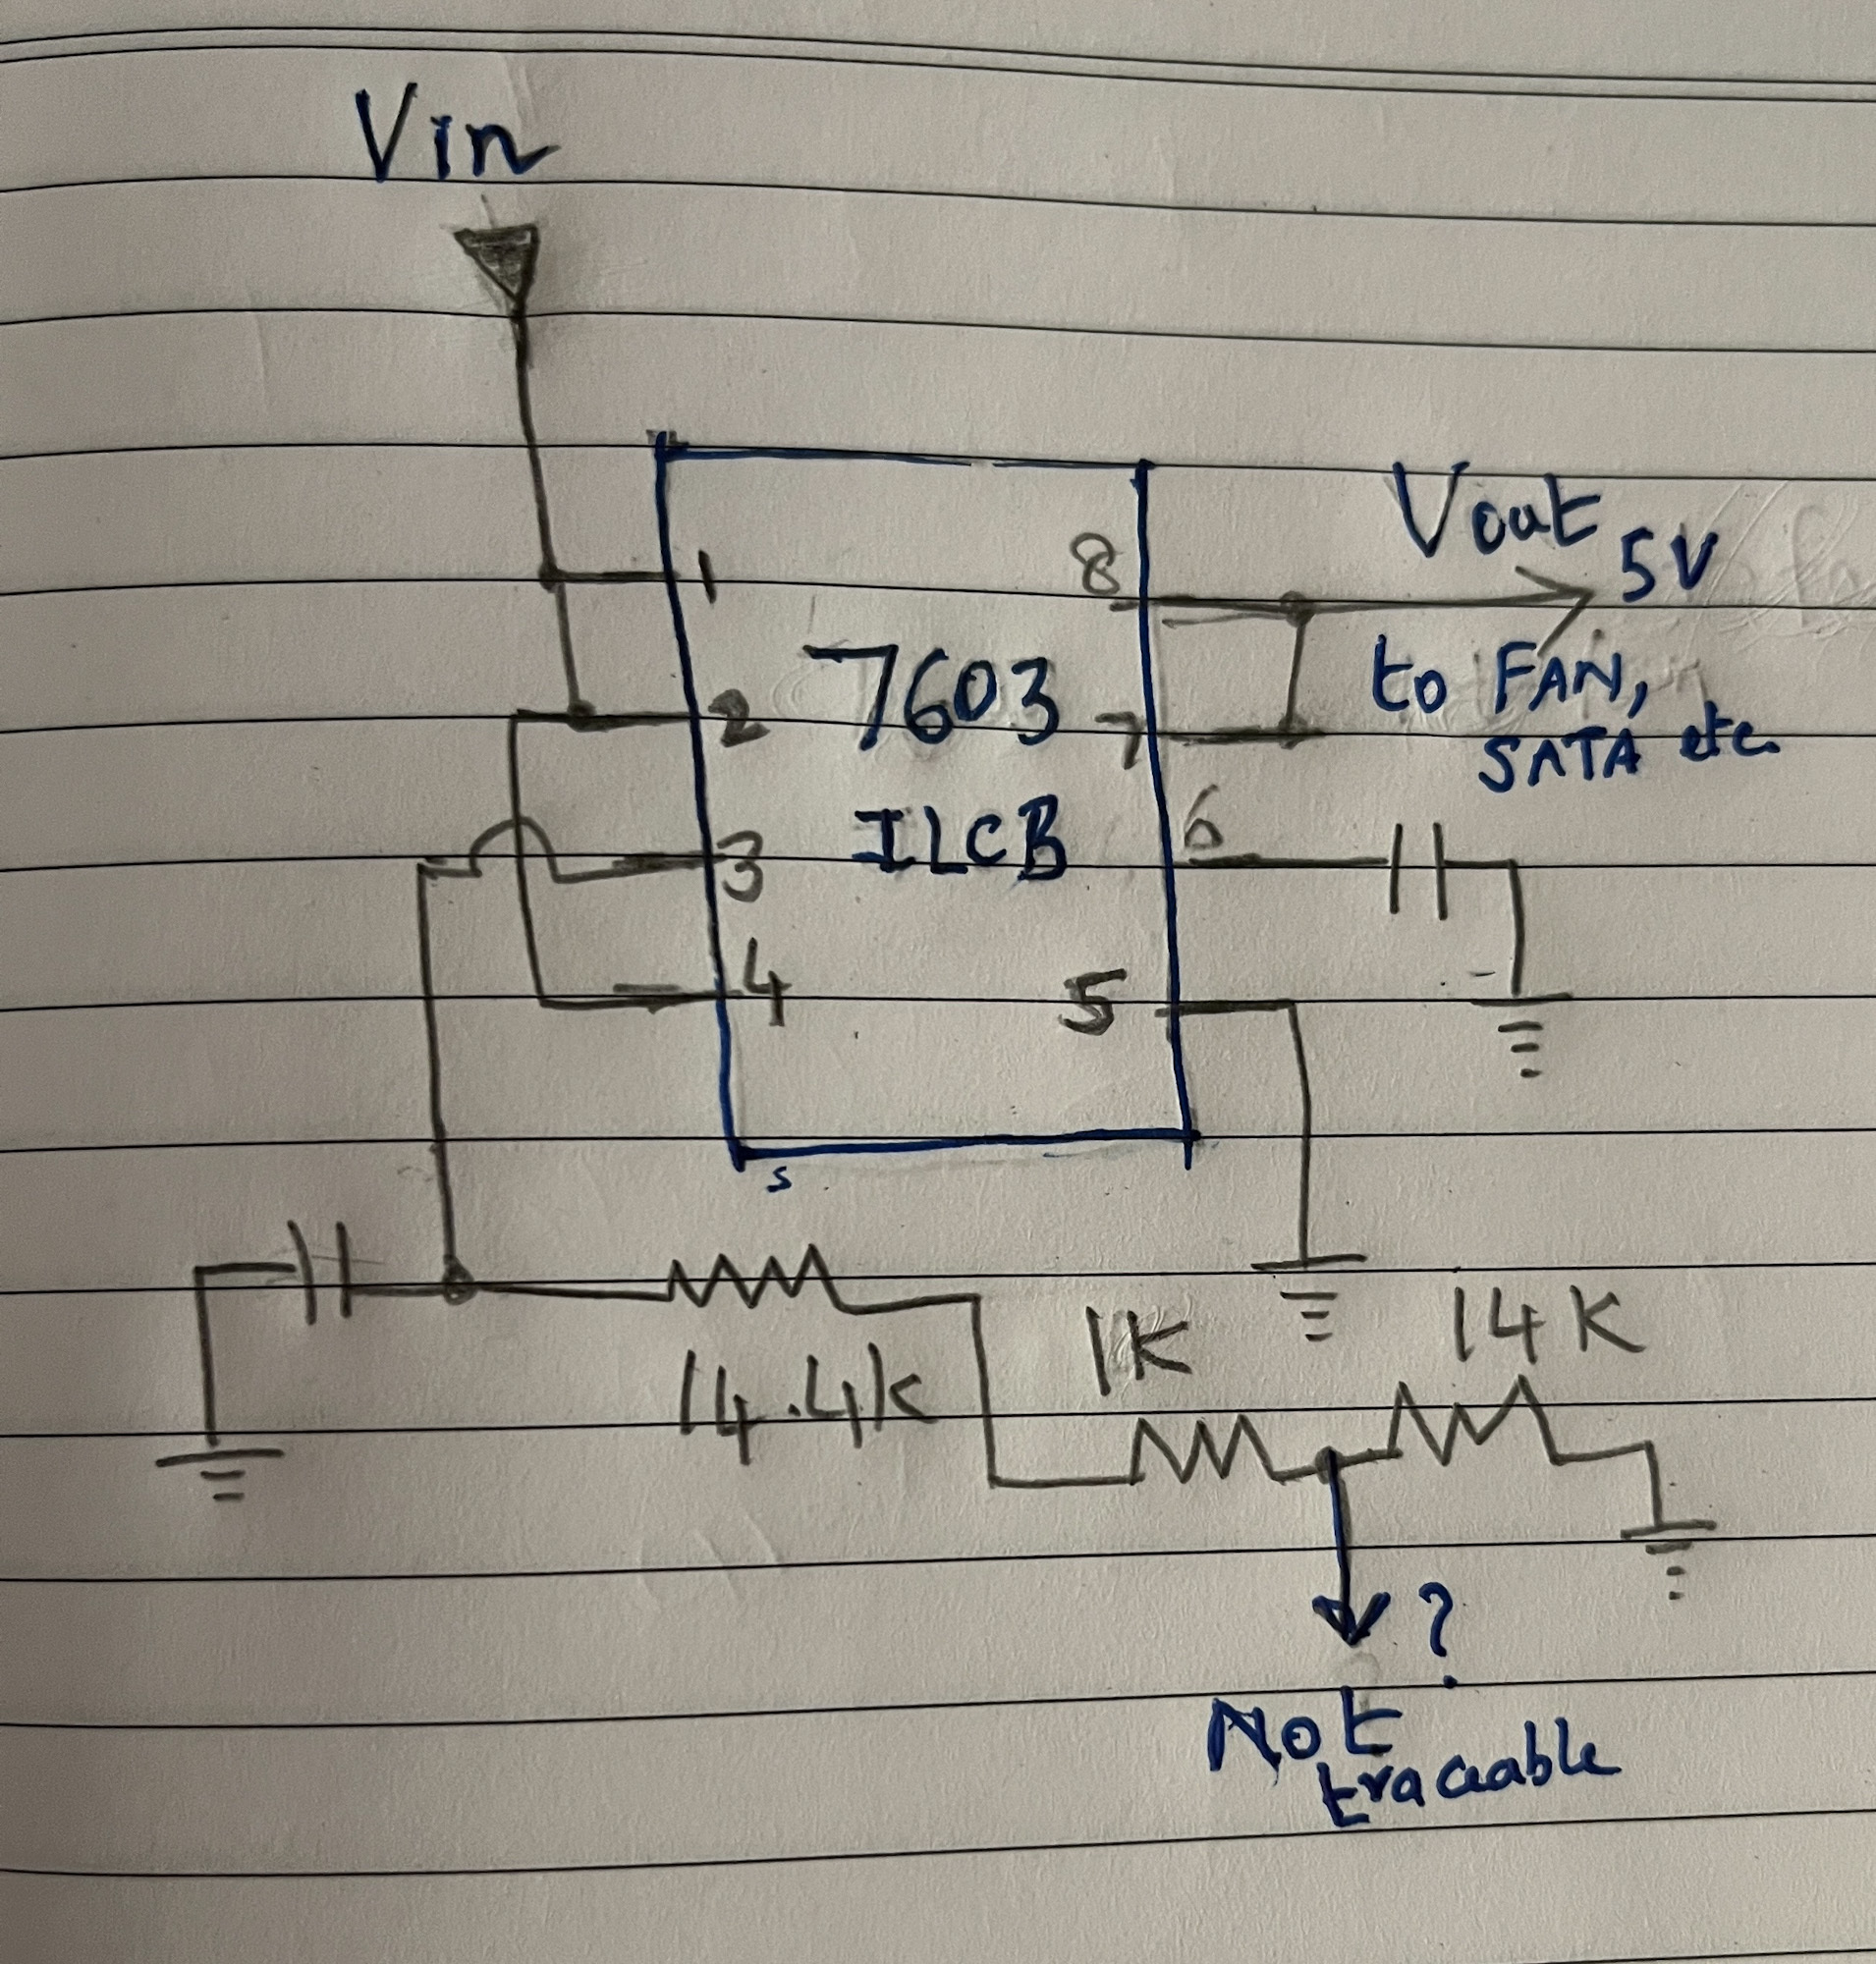 Vin
Vout 5V
to FAN,
SATA etc.
1
8
2
7603
7
3
ILCB
6
4
5
s
14.4K
1K
14K
?
Not
traceable